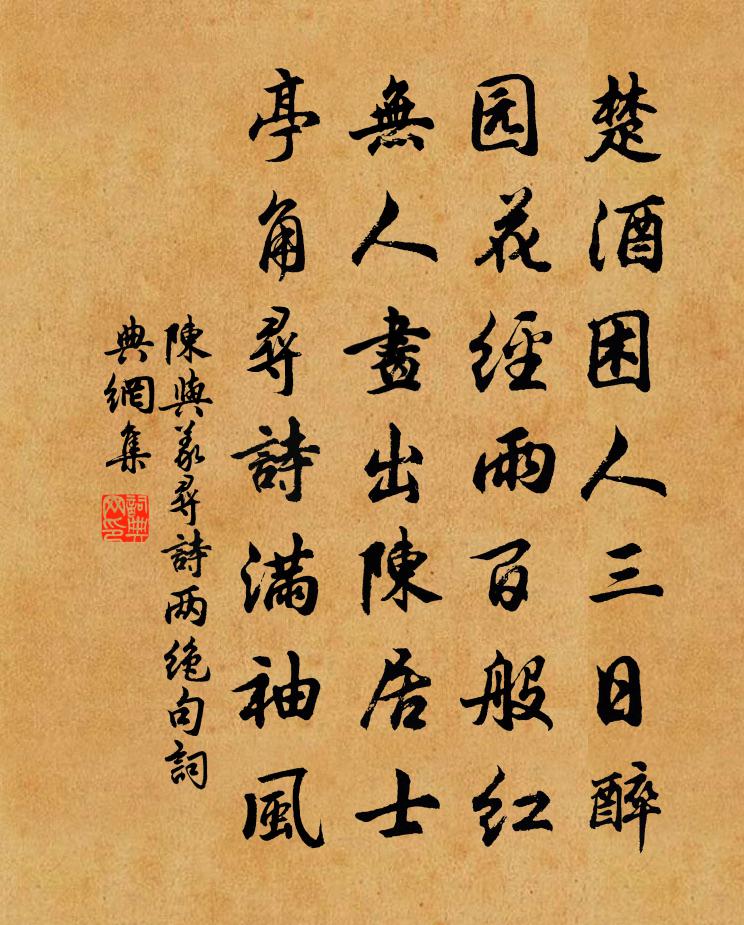 楚酒困人三日醉
园花經雨百般红
無人畫出陳居士
亭角尋詩滿袖風
陳與義尋詩两绝句詞
典網集
詞典
网印